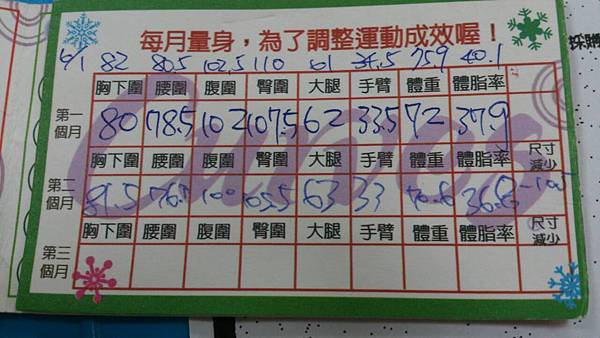 每月量身，為了調整運動成效喔！
6/1 82 80.5 102.5 110 61 34.5 75.9 40.1
胸下圍 腰圍 腹圍 臀圍 大腿 手臂 體重 體脂率
第一個月 80 78.5 102 107.5 62 33.5 72 37.9
胸下圍 腰圍 腹圍 臀圍 大腿 手臂 體重 體脂率 尺寸減少
第二個月 81.5 100 105.5 63 33 70.6
胸下圍 腰圍 腹圍 臀圍 大腿 手臂 體重 體脂率 尺寸減少
第三個月
Curves